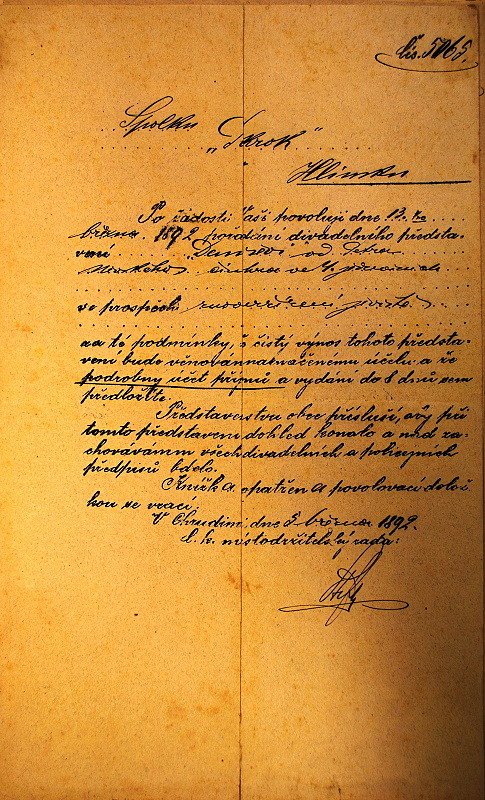 čís. 5065.
Spolku
„Skrok"
Hlinsku
Po žádosti Vaší povoluji dne 13. t.
března 1892 pořádání divadelního předsta-
vení od Petra
ve 4 jednáních
ve prospěch
za té podmínky, že čistý výnos tohoto předsta-
vení bude věnován naznačenému účelu a že
podrobný účet příjmů a vydání do 8 dnů sem
předložíte.
Představenstvu obce přísluší, aby při
tomto představení dohled konalo a nad za-
chováváním všech divadelních a policejních
předpisů bdělo.
Knížka opatřena povolovací dolož-
kou se vrací.
V Chrudimi, dne 5 března 1892.
C. k. místodržitelský rada: